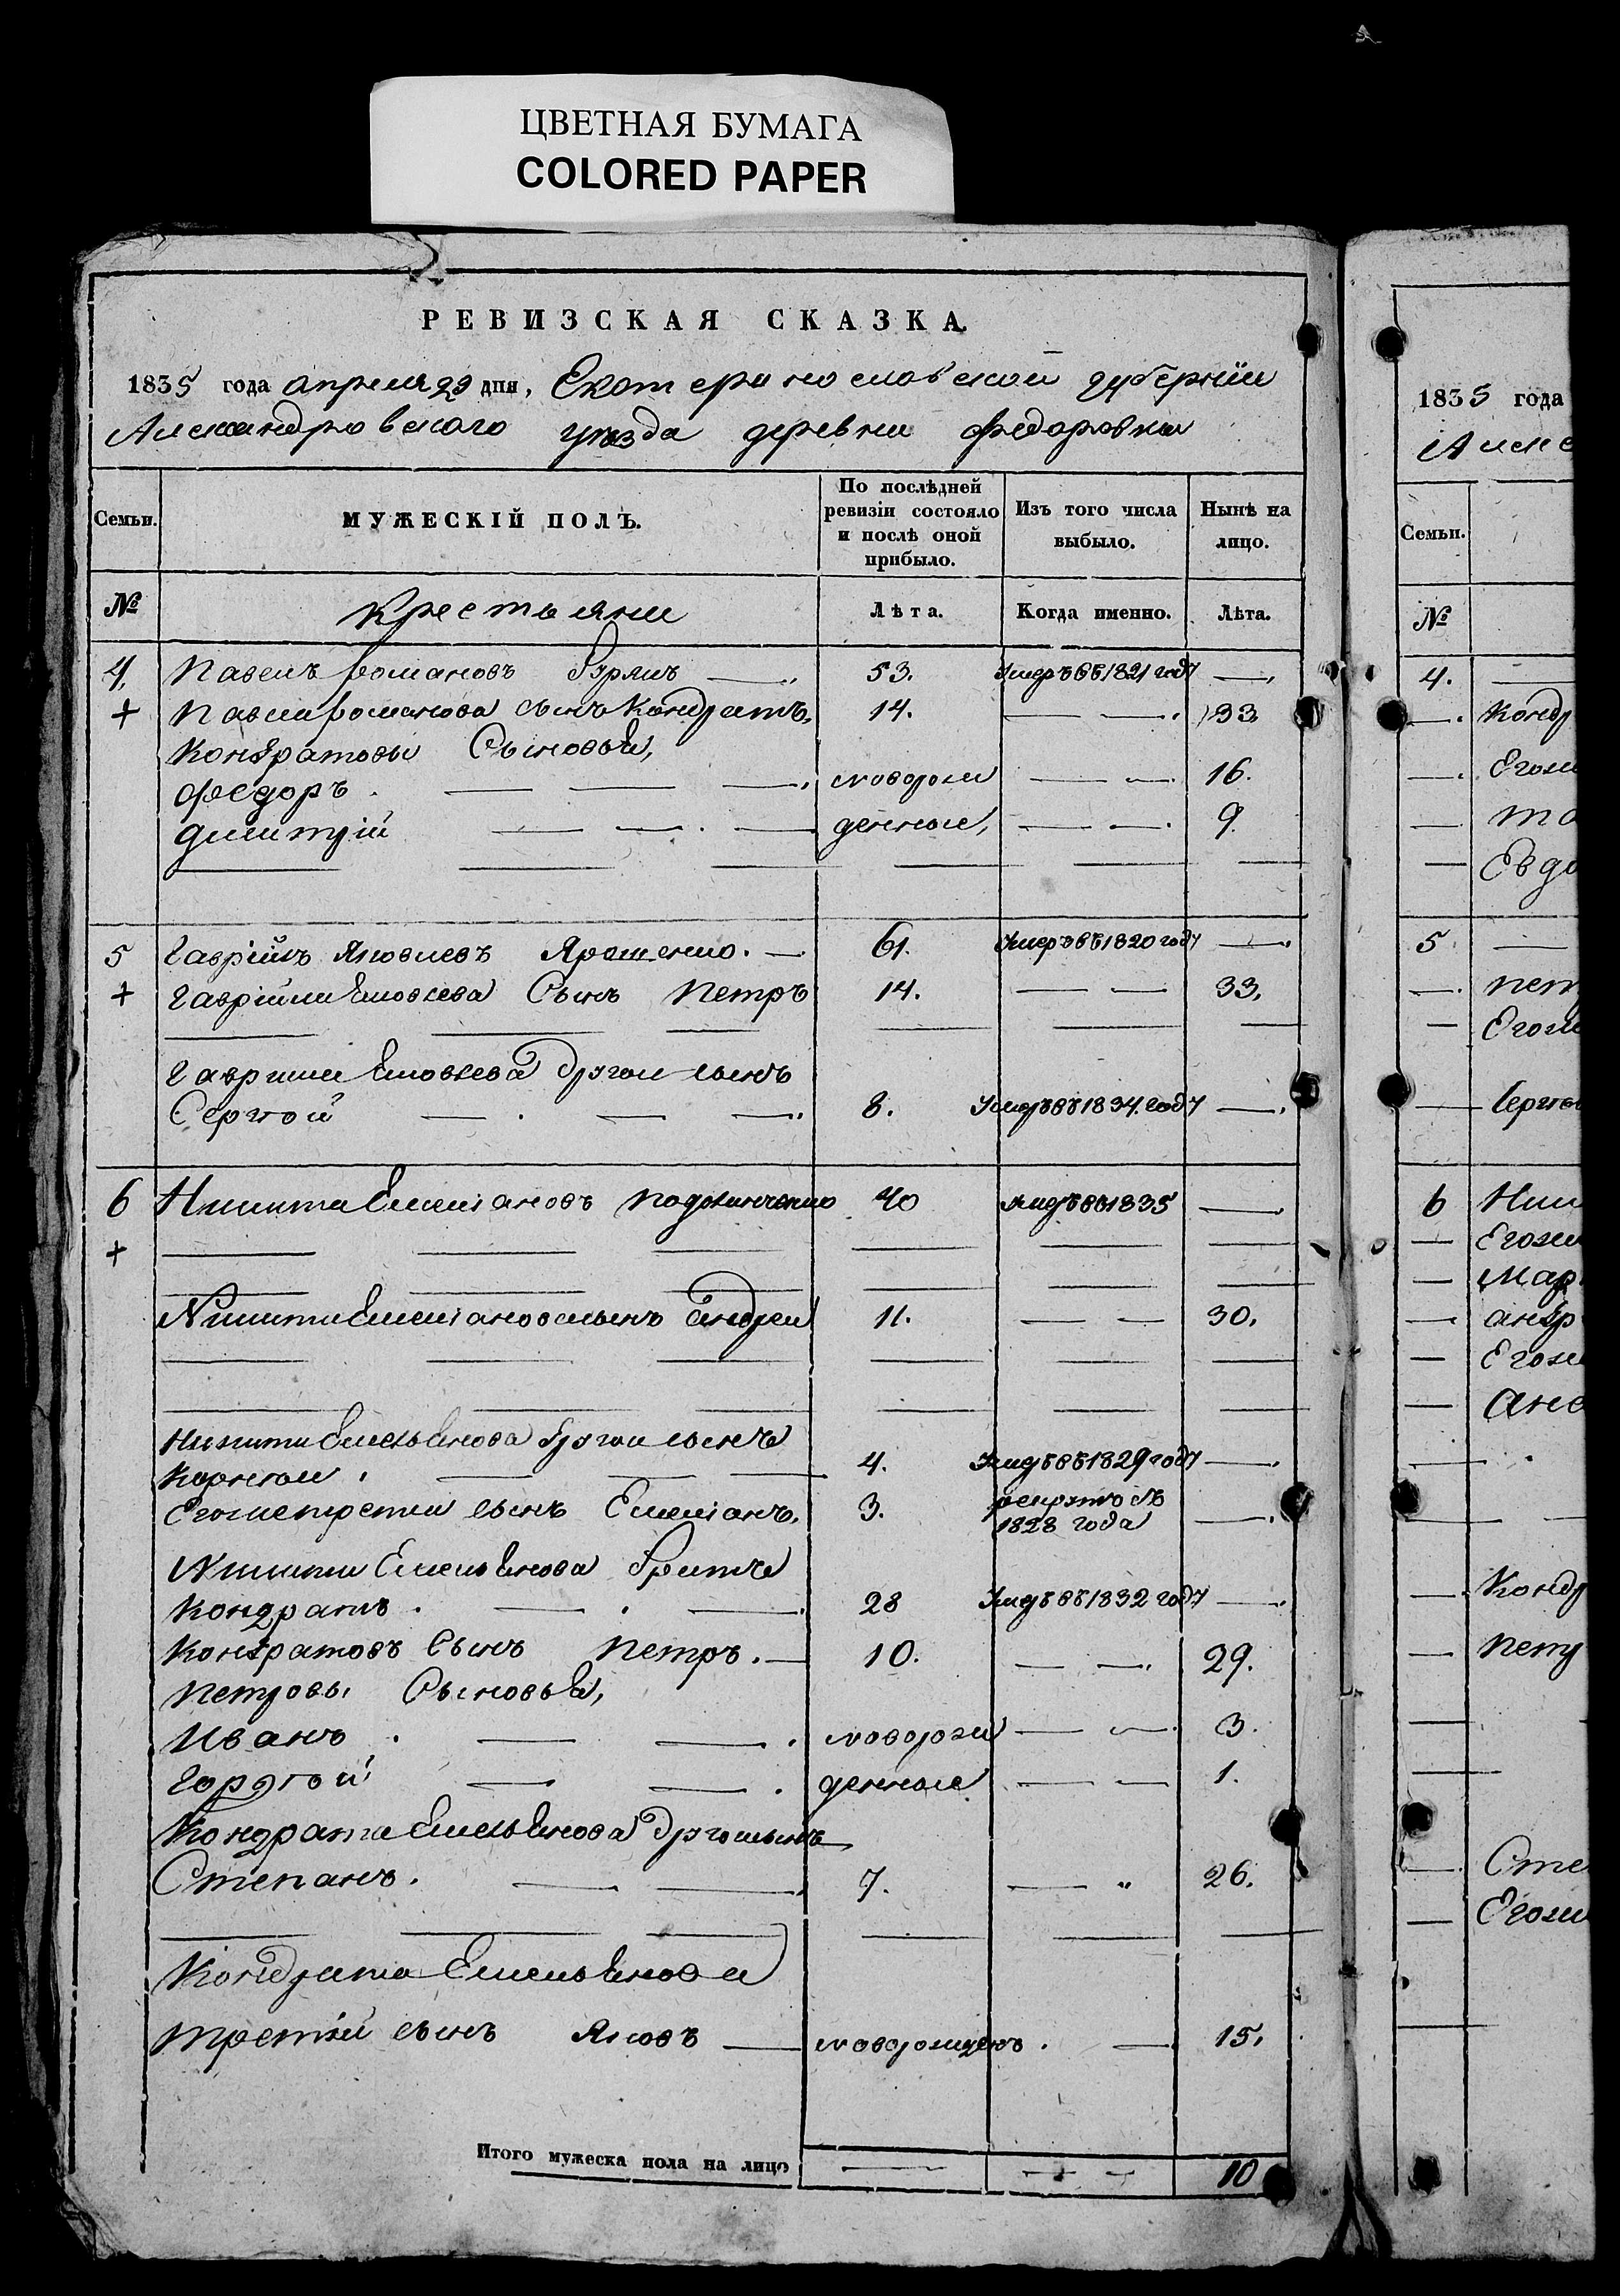 ЦВЕТНАЯ БУМАГА
COLORED PAPER
РЕВИЗСКАЯ СКАЗКА.
1835 года апреля 23 дня, Екатериnославской губернїи
Александровского уѣзда деревни Федоровки
Семьи. МУЖЕСКІЙ ПОЛЪ. По послѣдней ревизіи состояло и послѣ оной прибыло. Изъ того числа выбыло. Нынѣ на лицо.
№ Крестьяни Лѣта. Когда именно. Лѣта.
4. Павелъ Романовъ 53. Умеръ въ 1821 году —
+ Павла Романова сынъ Кондратъ. 14. — 33
Кондратовы Сыновья,
Федоръ — новорож — 16.
Димитрій — денные, — 9.
5 Гавріилъ Яковлевъ Ярошенко. — 61. Умеръ въ 1820 году —
+ Гавріила Яковлева Сынъ Петръ 14. — 33.
Гаврила Яковлева другой сынъ
Сергѣй — 8. Умеръ въ 1834 году —
6 Никита Емельяновъ 40 Умеръ въ 1835 —
+
Никиты Емельянова сынъ Андрей 11. — 30.
Никиты Емельянова другой сынъ
Корнѣй — 4. Умеръ въ 1829 году —
Его же третій сынъ Емельянъ. 3. рекрутъ съ 1828 года —
Никиты Емельянова братъ
Кондратъ — 28 Умеръ въ 1832 году —
Кондратовъ Сынъ Петръ. — 10. — 29.
Петровы Сыновья,
Иванъ — новорож — 3.
Гордѣй — денные — 1.
Кондрата Емельянова другой сынъ
Степанъ. — 7. — „ 26.
Кондрата Емельянова
третій сынъ Яковъ — новорожденъ. — 15.
Итого мужеска пола на лицо — — 10
1835 года
Алекс
Семьи.
№
4. —
—. Кондр
—. Его же
—
— Евдо
5 —
—. Пет
— Его же
— Сергѣ
6 Ник
— Его же
— Мар
— Андр
— Его же
— Ано
— Кондр
— Петр
— Сте
— Его же